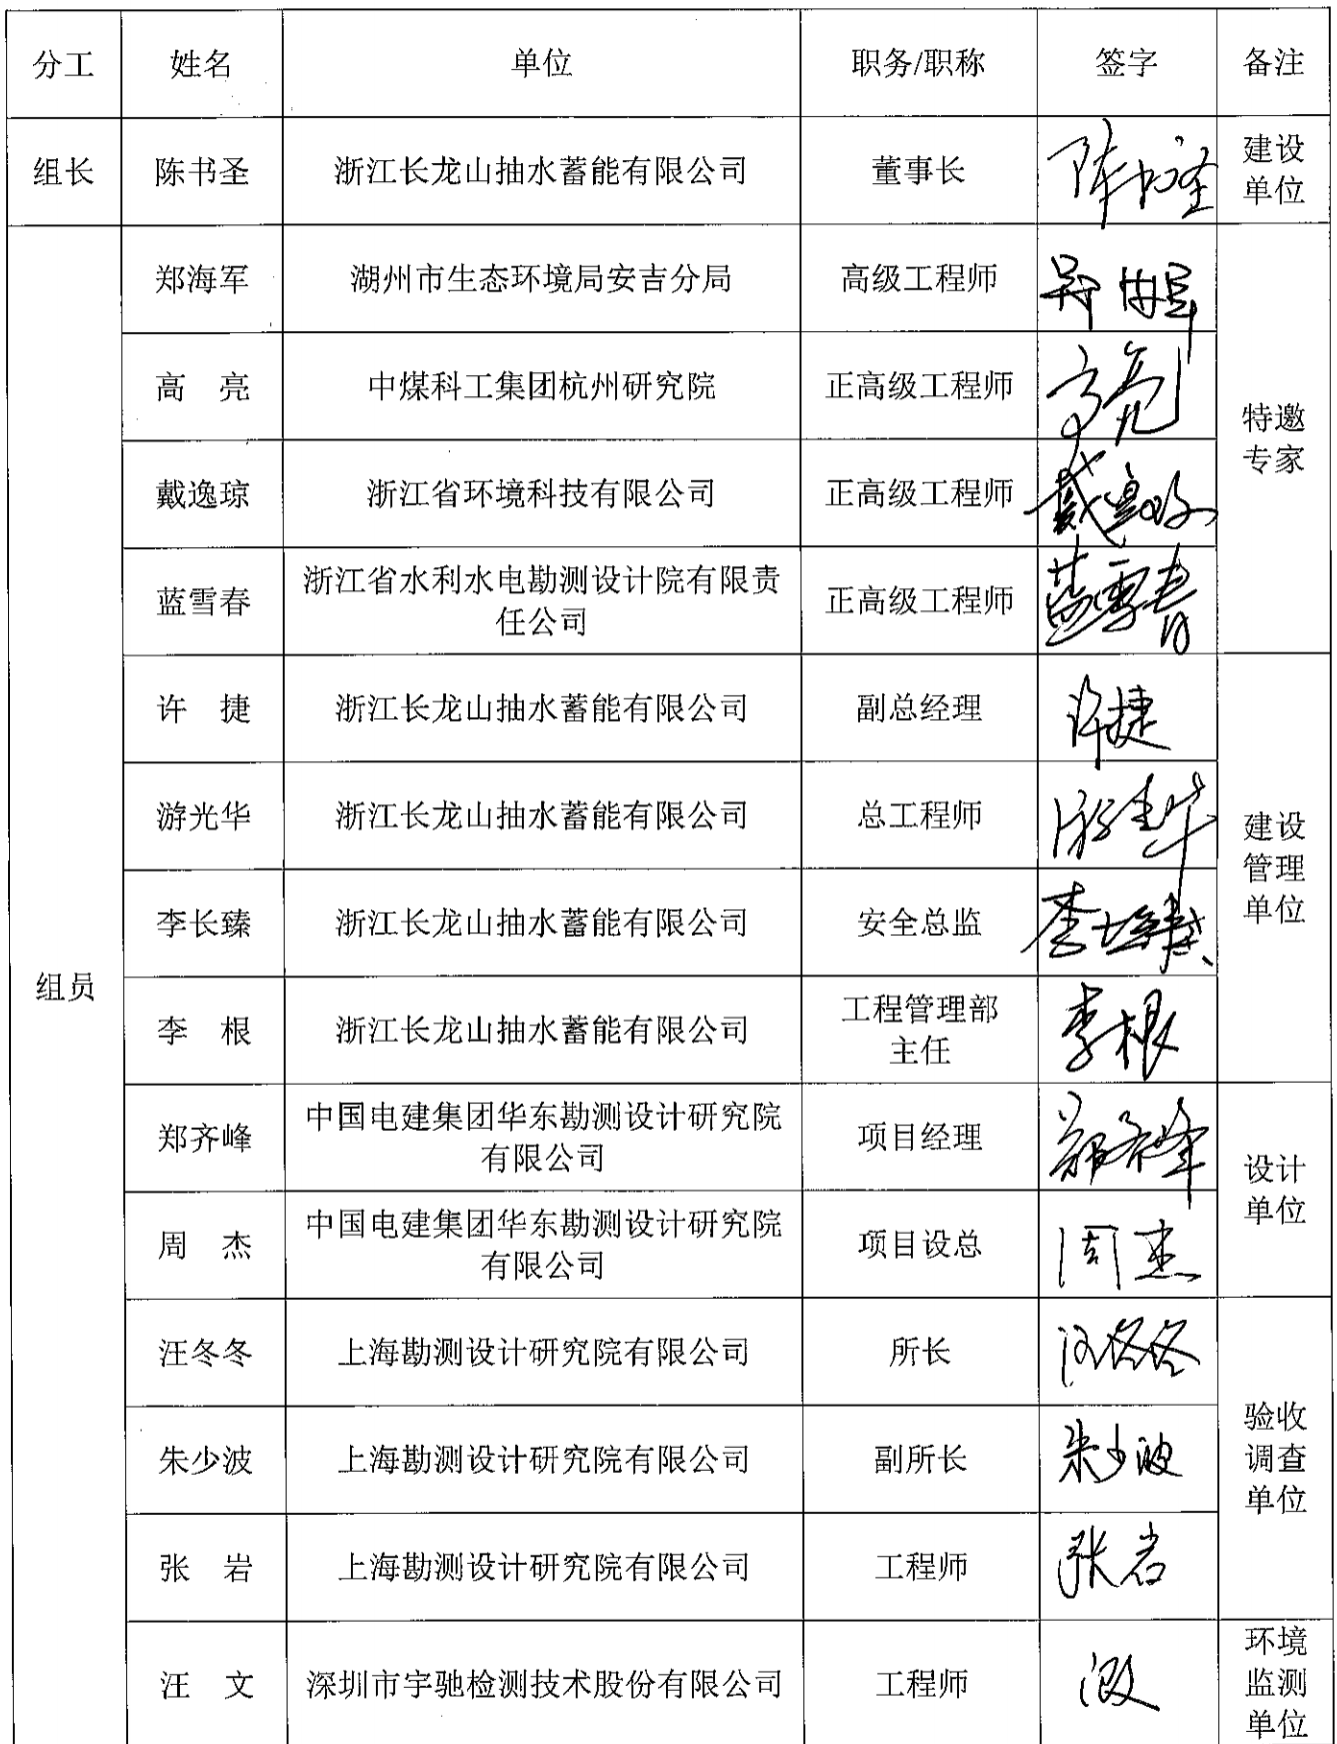 分工 姓名 单位 职务/职称 签字 备注
组长 陈书圣 浙江长龙山抽水蓄能有限公司 董事长 陈书圣 建设
单位
组员
郑海军 湖州市生态环境局安吉分局 高级工程师 郑海军
高 亮 中煤科工集团杭州研究院 正高级工程师 高亮
特邀
专家
戴逸琼 浙江省环境科技有限公司 正高级工程师 戴逸琼
蓝雪春 浙江省水利水电勘测设计院有限责
任公司 正高级工程师 蓝雪春
许 捷 浙江长龙山抽水蓄能有限公司 副总经理 许捷
游光华 浙江长龙山抽水蓄能有限公司 总工程师 游光华
建设
管理
单位
李长臻 浙江长龙山抽水蓄能有限公司 安全总监 李长臻
李 根 浙江长龙山抽水蓄能有限公司 工程管理部
主任 李根
郑齐峰 中国电建集团华东勘测设计研究院
有限公司 项目经理 郑齐峰
设计
单位
周 杰 中国电建集团华东勘测设计研究院
有限公司 项目设总 周杰
汪冬冬 上海勘测设计研究院有限公司 所长 汪冬冬
朱少波 上海勘测设计研究院有限公司 副所长 朱少波
验收
调查
单位
张 岩 上海勘测设计研究院有限公司 工程师 张岩
汪 文 深圳市宇驰检测技术股份有限公司 工程师 汪文
环境
监测
单位